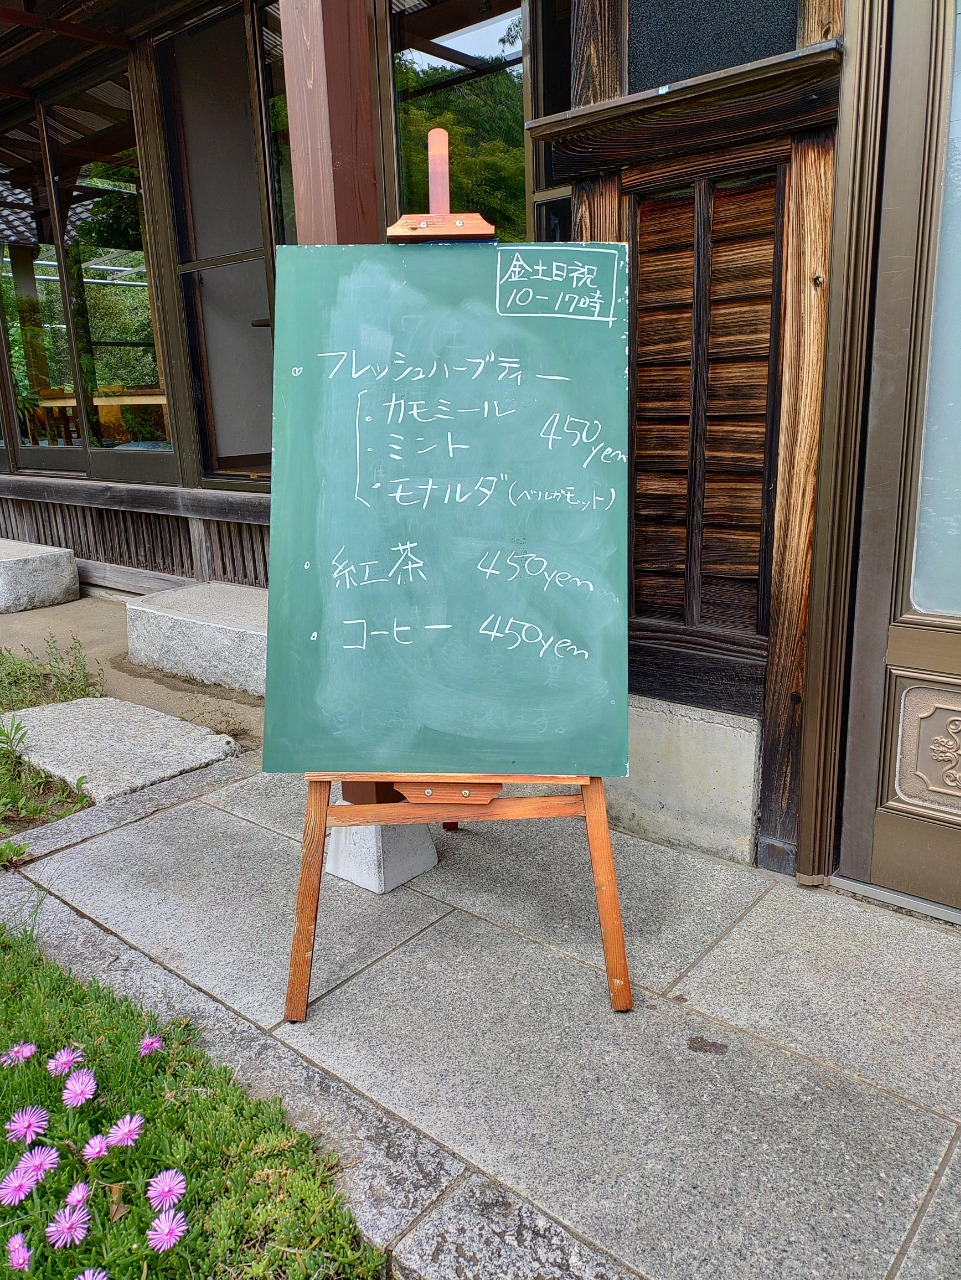 金土日祝
10-17時
フレッシュハーブティー
・カモミール
・ミント 450yen
・モナルダ(ベルガモット)
紅茶 450yen
コーヒー 450yen